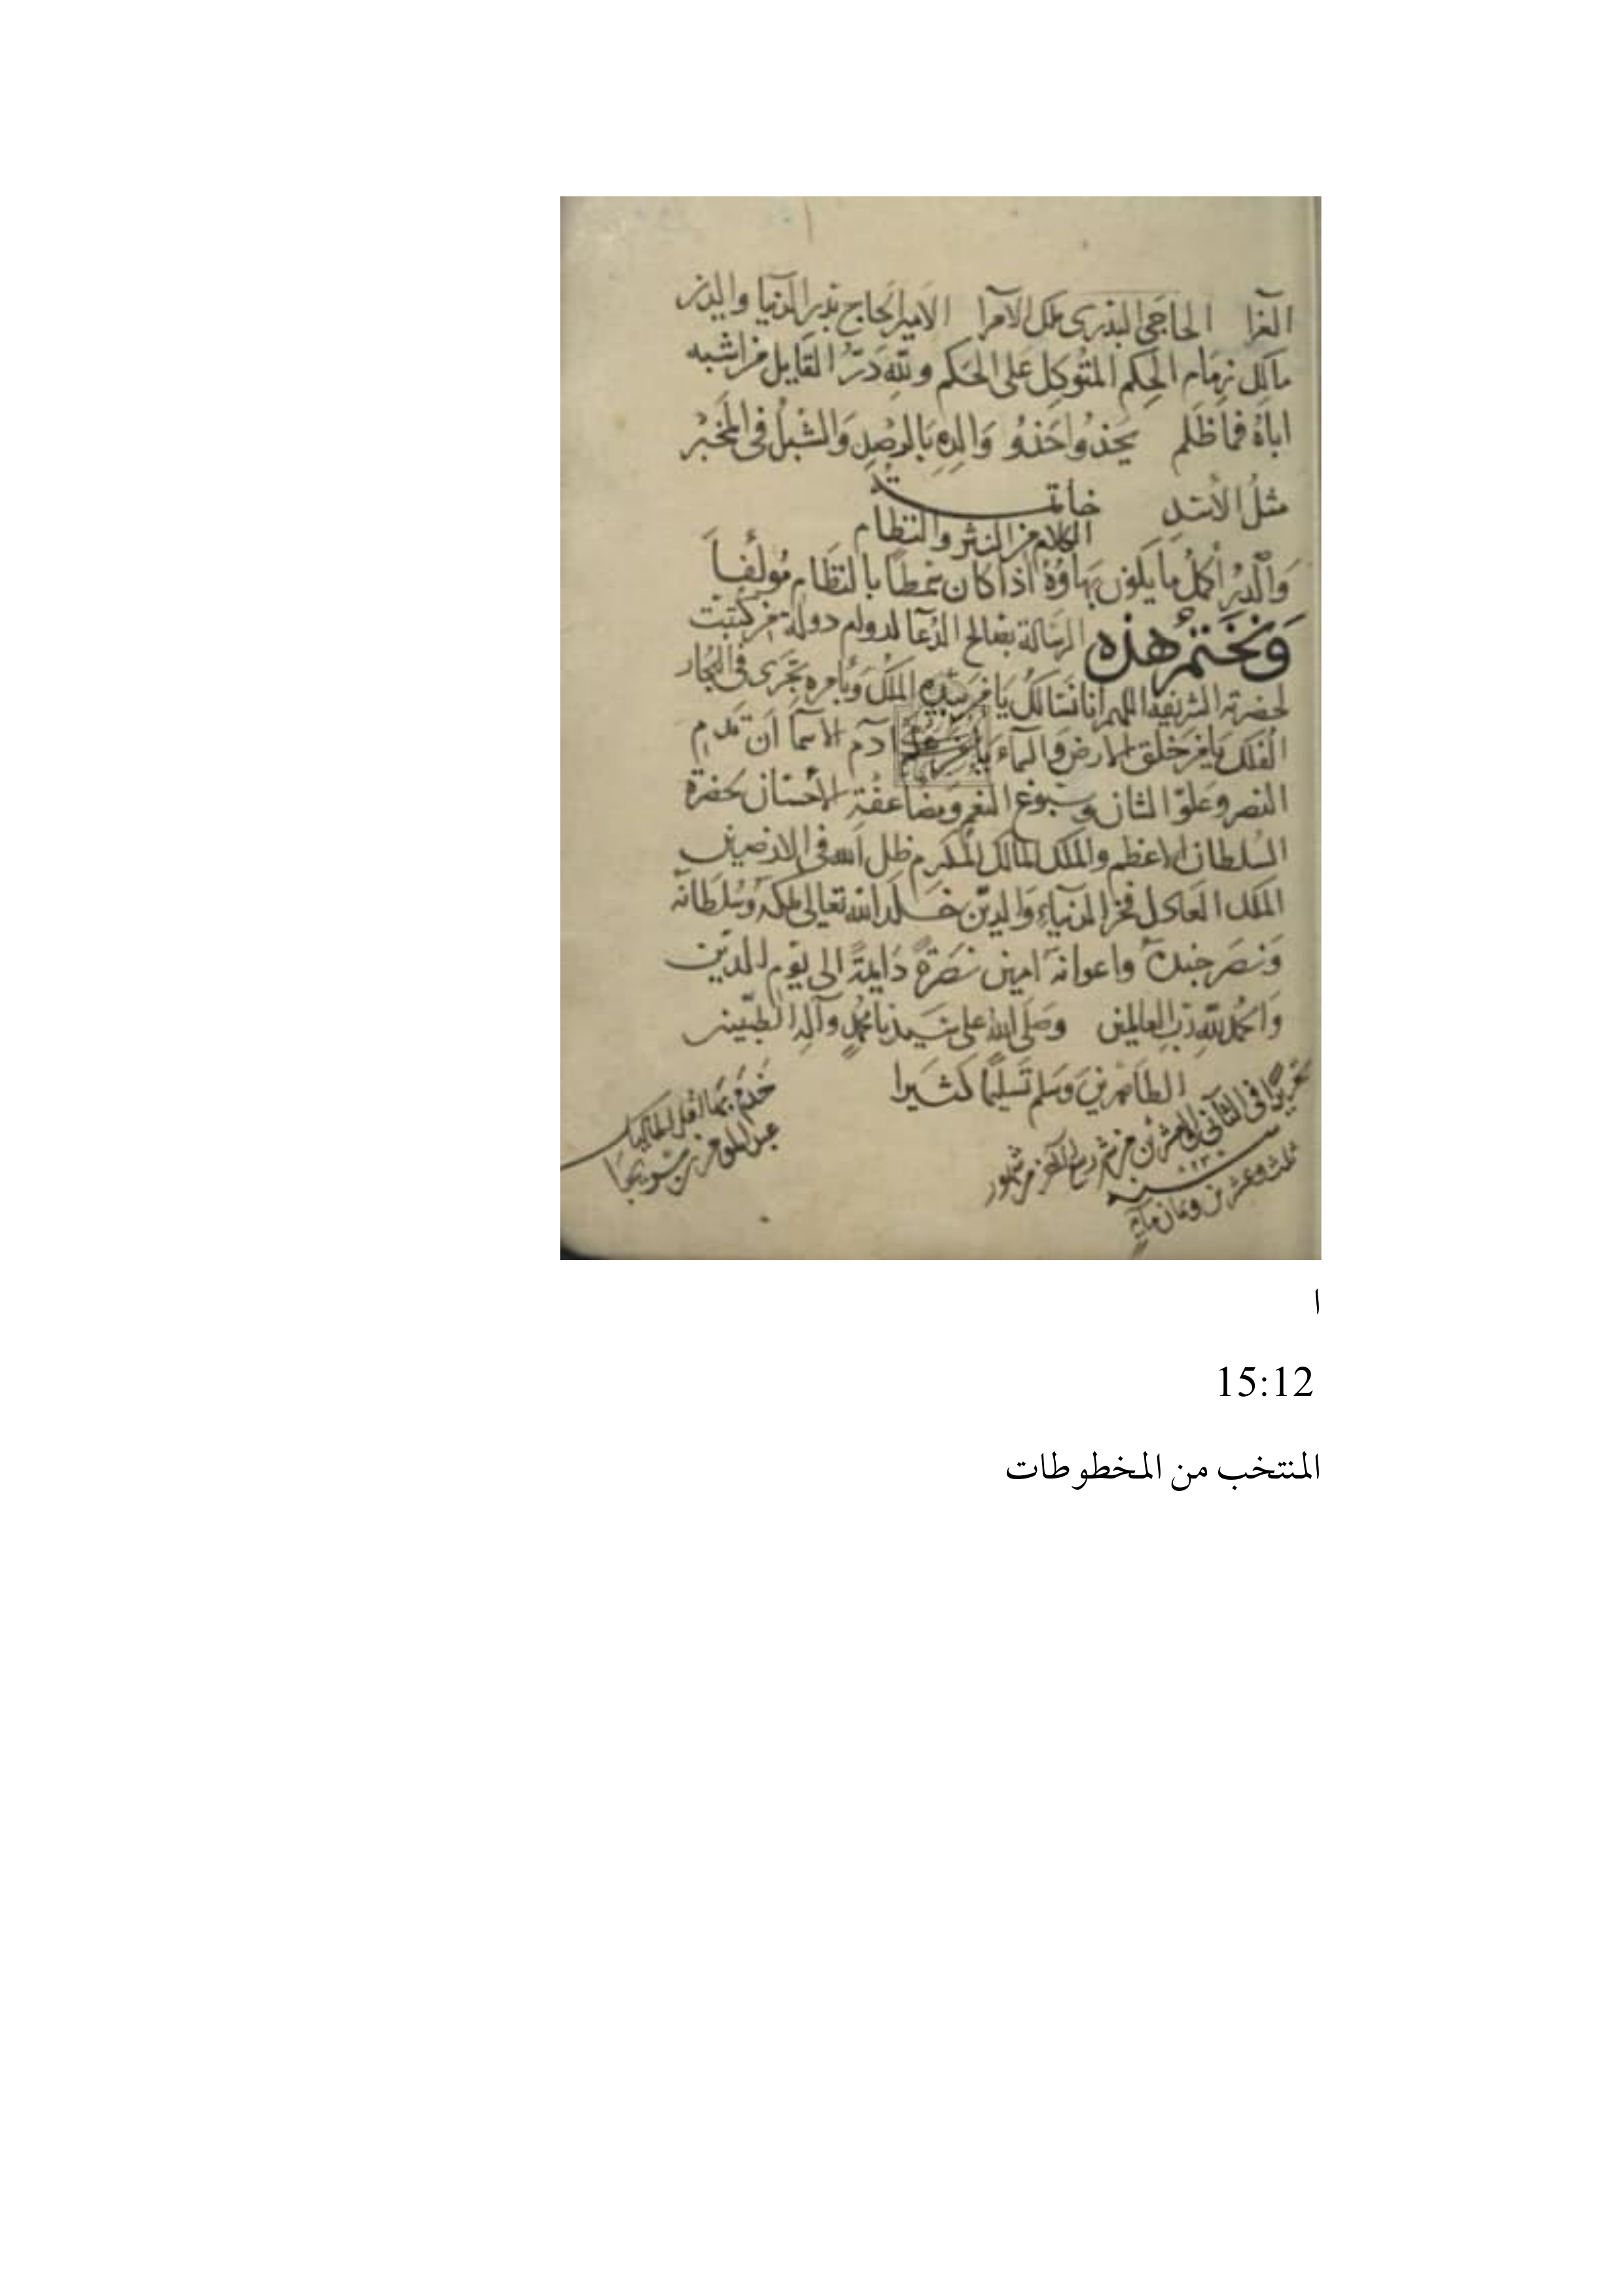 الغرا الحاجى البدرى ملك الامرا الامير الحاج بدر الدنيا والدين
مالك زمام الحكم المتوكل على الحكم ولله در القايل من اشبه
اباه فما ظلم يحذوا حذو والده بالرصد والشبل فى المخبر
مثل الاسد خاتمة
الكلام من النثر والنظام
والدر اكمل ما يكون بهاؤه اذا كان نمطا بالنظام مولفا
ونختم هذه الرسالة بصالح الدعا لدوام دولة من كتبت
لحضرته الشريفة اللهم انا نسالك يا من بيده الملك وبامره تجرى فى البحار
الفلك يا من خلق الارض والسماء يا من علم ادم الاسما ان تديم
النصر وعلو الشان وسبوغ النعم ومضاعفة الاحسان بحضرة
السلطان الاعظم والملك المالك المكرم ظل الله فى الارضين
الملك العادل فخر الدنياء والدين خلد الله تعالى ملكه وسلطانه
ونصر جنده واعوانه امين نصرة دايمة الى يوم الدين
والحمد لله رب العالمين وصلى الله على سيدنا محمد وآله الطيبين
الطاهرين وسلم تسليما كثيرا
تحريرا فى الثانى والعشرين من شهر ربيع الاخر من شهور
سنه
ثلث وعشرين وثمان مايه
خدم بها اقل المماليك
ا
15:12
المنتخب من المخطوطات